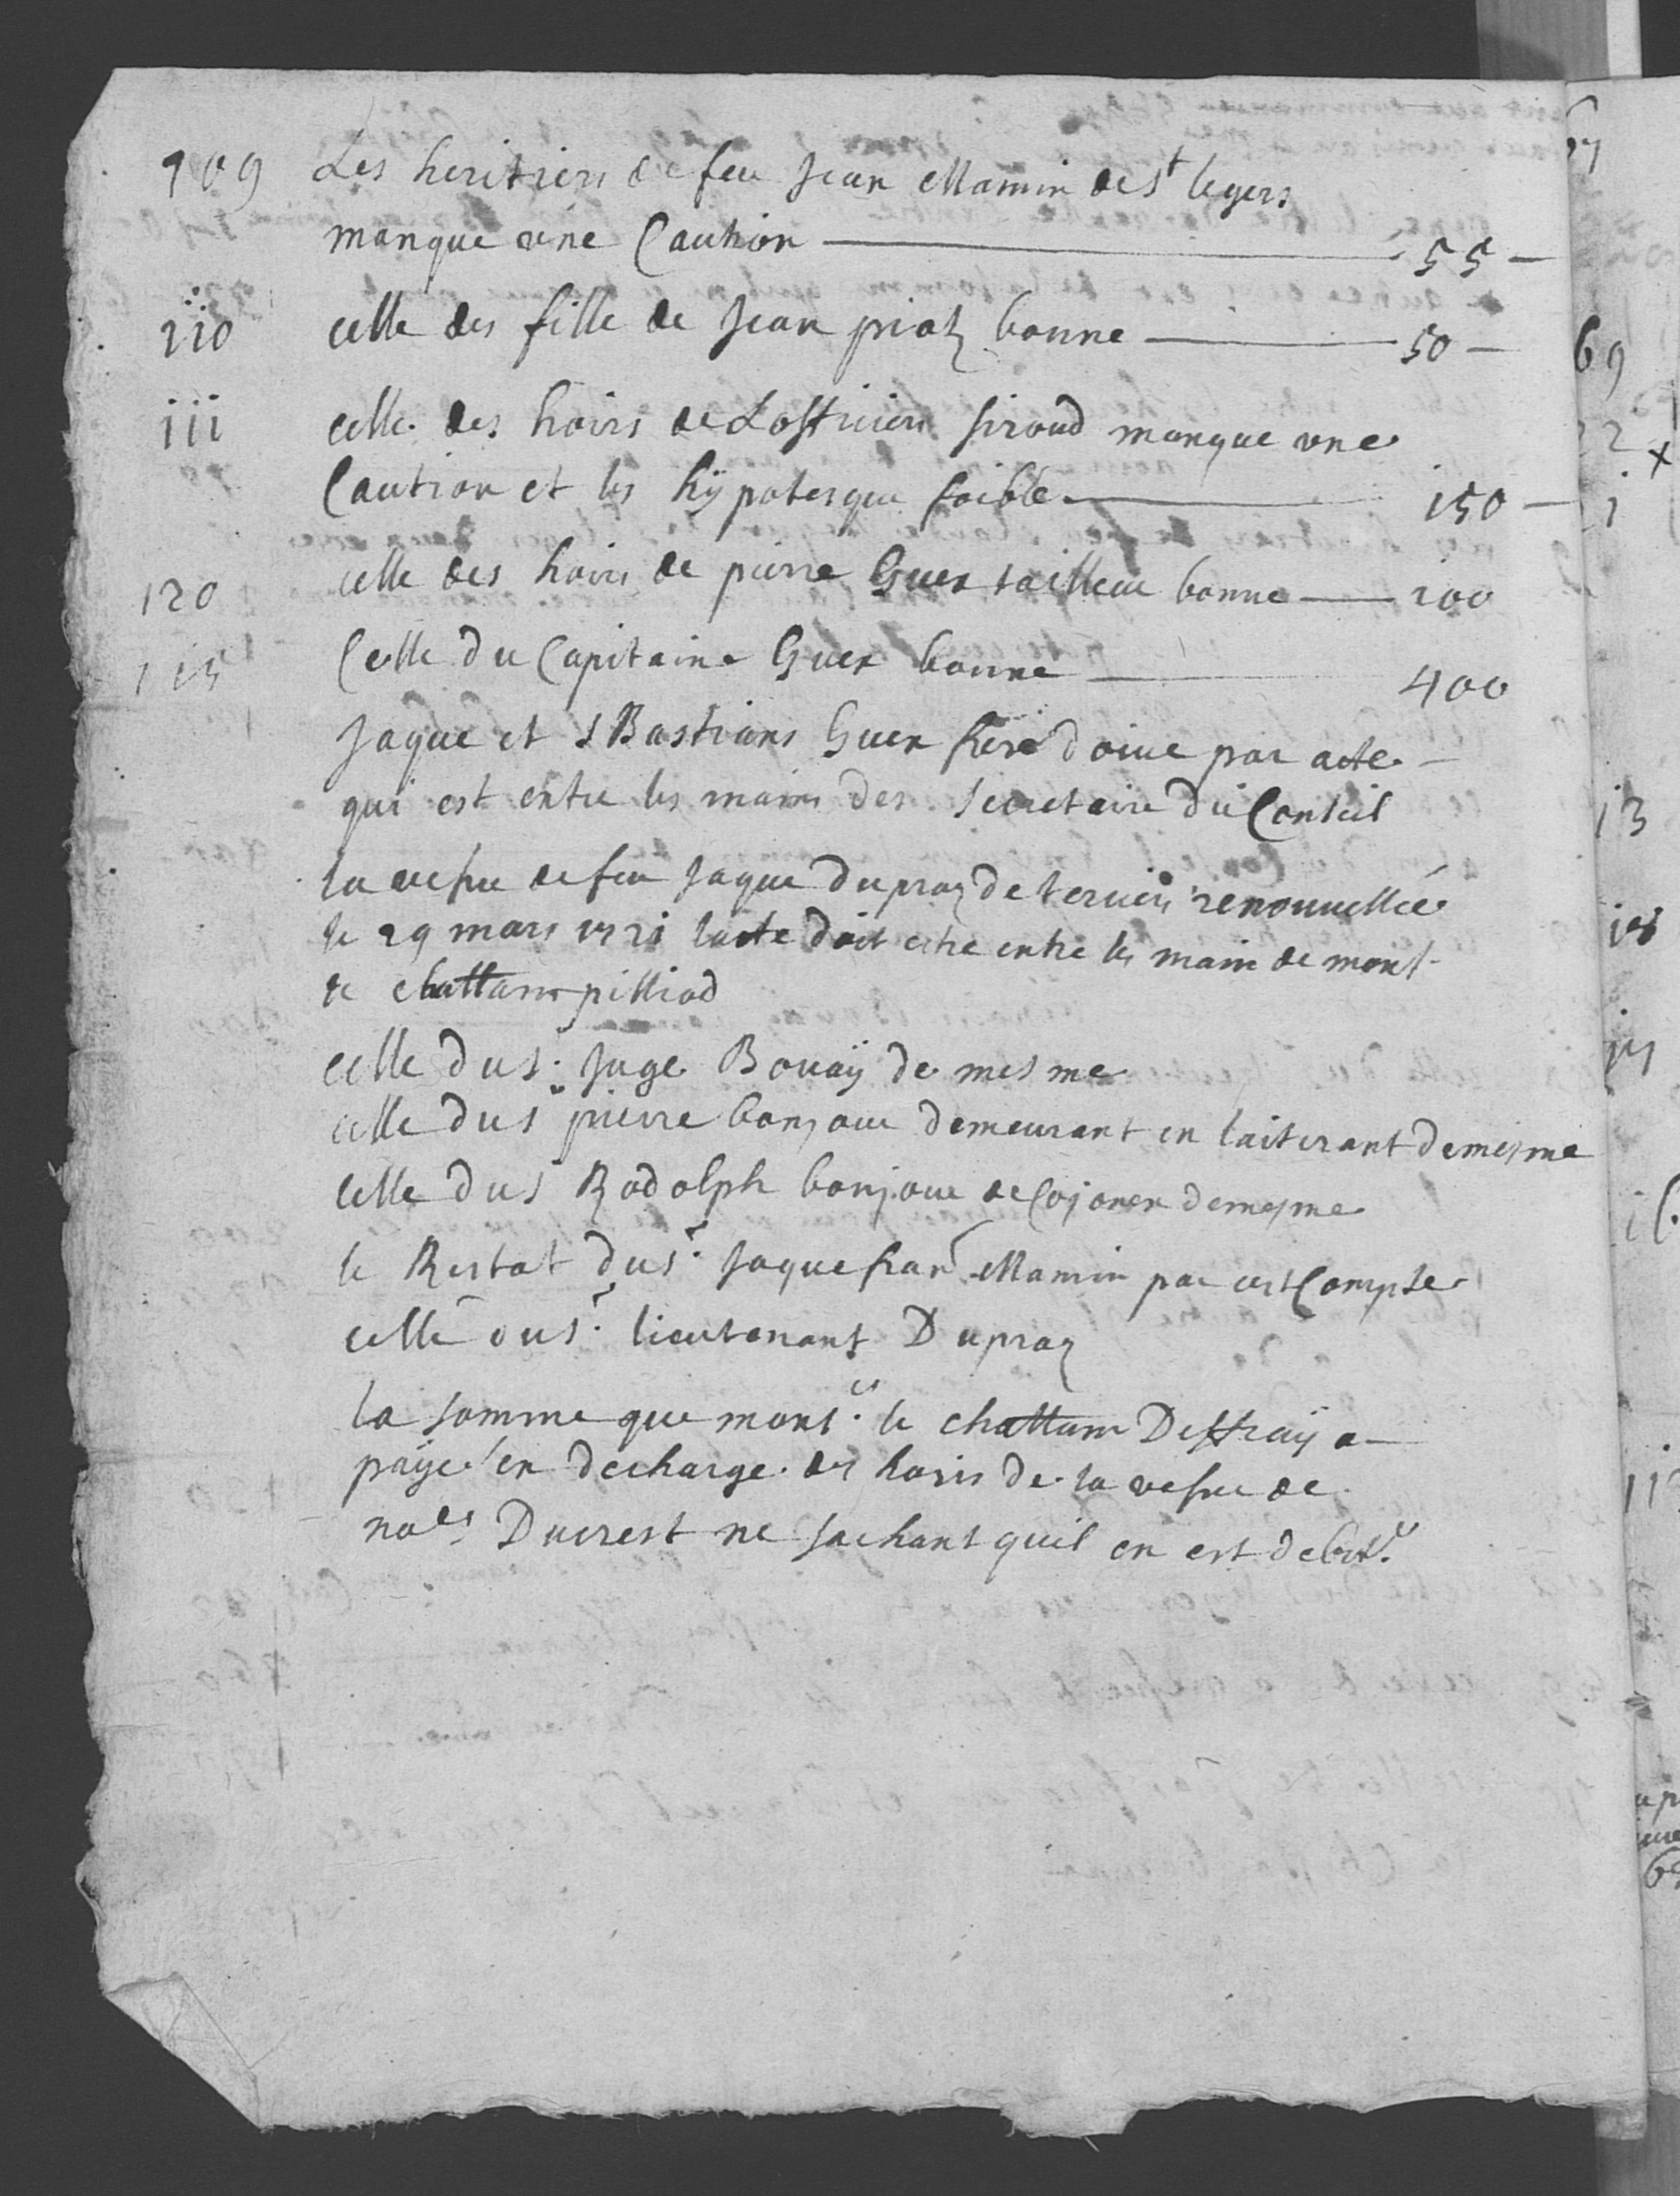 109 Les heritiers de feu Jean Mamin de St legers
manque une Caution — 55 —
110 celle des fille de Jean priotz bonne — 50 —
111 celle des hoirs de Loffticier siroud manque une
Caution et les hÿpotesque foible — 150 —
120 celle des hoirs de pierre Guex tailleur bonne — 100
115 Celle du Capitaine Guex bonne — 400
Jaque et S Bastians Guex frere doive par acte —
qui est entre les mains des secretaire du Conseil
la vefue de feu Jaque dupraz de renouuellée
le 29 mars 1721 lacte doit estre entre les main de monsr
le chattam pilliod
celle du sr. Juge Bouaÿ de mesme
celle du sr pierre bonjour demeurant en demesme
celle du sr Rodolph bonjour de demesme
le Restat du sr. Jaque fran Mamin par cest Compte
celle du sr. lieutenant Dupraz
la somme que monsr. le chattam Deffraÿ a —
paÿe en decharge des hoirs de la vefue de
nobles Ducrest ne sachant quil en est debitr.
69
22 x
1
13